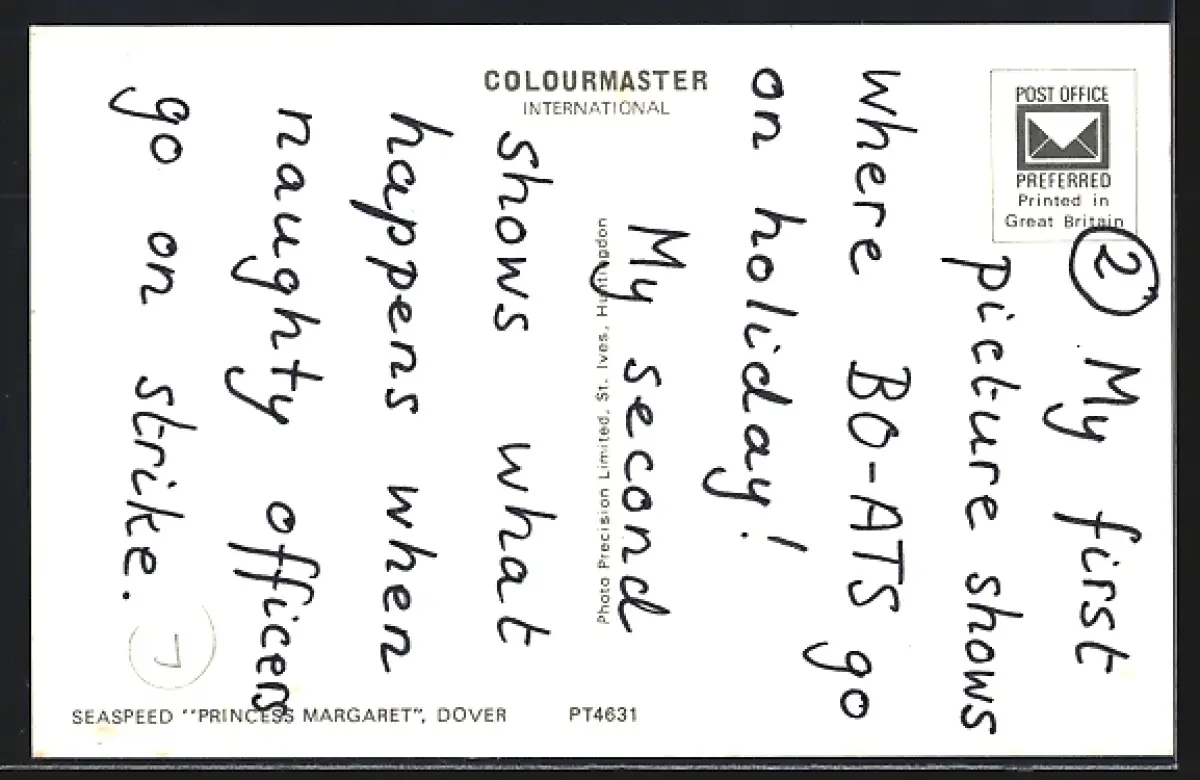 COLOURMASTER
INTERNATIONAL
POST OFFICE
PREFERRED
Printed in
Great Britain
② My first
picture shows
where BO-ATS go
on holiday!
My second
shows what
happens when
naughty officers
go on strike.
7
Photo Precision Limited, St. Ives, Huntingdon
SEASPEED "PRINCESS MARGARET", DOVER PT4631